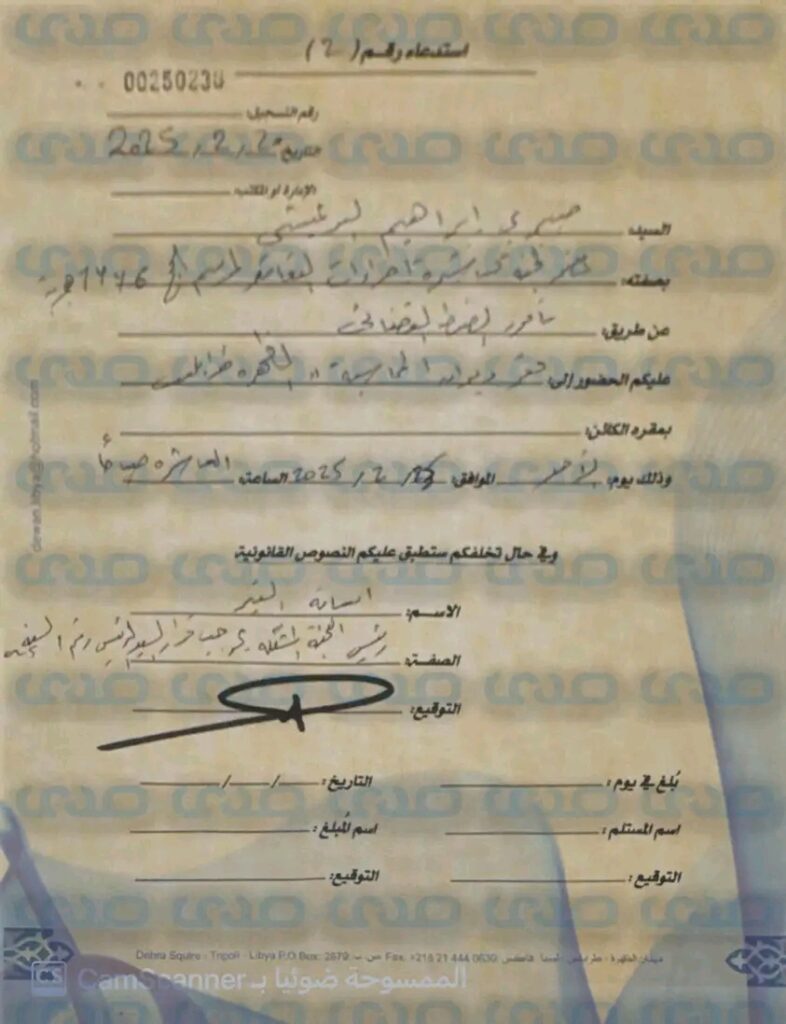 استدعاء رقم ( 2 )
0025023
رقم التسجيل:
التاريخ: 2025/2/2
الإدارة أو المكتب:
السيد: صبري إبراهيم البرغيثي
بصفته: إجراءات التعاقد لموسم الحج 1446 هـ
عن طريق: مأمور الضبط القضائي
عليكم الحضور إلى: مقر ديوان المحاسبة الظهرة طرابلس
بمقره الكائن:
وذلك يوم: الأحد الموافق: 2025/2/23 الساعة: العاشرة صباحا
وفي حال تخلفكم ستطبق عليكم النصوص القانونية
الاسم: أسامة
الصفة: رئيس اللجنة المشكلة بموجب قرار السيد رئيس
التوقيع:
بُلغ في يوم: التاريخ: / /
اسم المستلم: اسم المُبلغ:
التوقيع: التوقيع:
dewan.libya@hotmail.com
ميدان الظهرة - طرابلس - ليبيا فاكس: Fax. +218 21 444 0630 ص.ب Dahra Squire - Tripoli - Libya P.O.Box: 2879
الممسوحة ضوئيا بـ CamScanner
CS
صدى